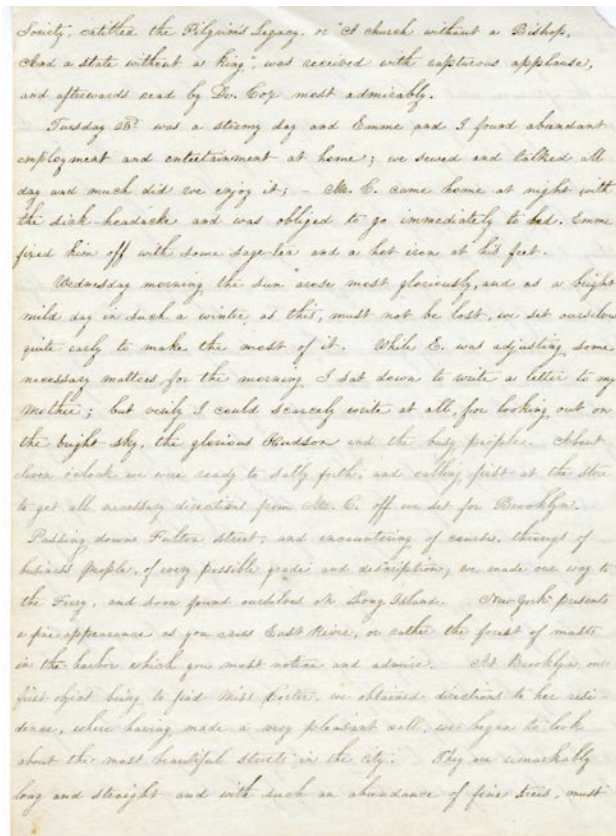 Society, entitled the Pilgrim's Legacy, or "A church without a Bishop,
And a state without a King", was received with rapturous applause,
and afterwards read by Dr. Cox most admirably.
Tuesday was a stormy day and Emme and I found abundant
employment and entertainment at home; we sewed and talked all
day and much did we enjoy it; - Mr. C. came home at night with
the sick-headache and was obliged to go immediately to bed. Emme
fixed him off with some sage-tea and a hot iron at his feet.
Wednesday morning the sun arose most gloriously, and as a bright
mild day in such a winter as this, must not be lost, we set ourselves
quite early to make the most of it. While E. was adjusting some
necessary matters for the morning I sat down to write a letter to my
Mother; but verily I could scarcely write at all, for looking out on
the bright sky, the glorious Hudson and the busy people. About
eleven o'clock we were ready to sally forth, and calling first at the store
to get all necessary directions from Mr. C. off we set for Brooklyn.
Passing down Fulton street, and encountering of course, throngs of
business people, of every possible grade and description, we made our way to
the Ferry, and soon found ourselves on Long Island. New York presents
a fine appearance as you cross East River, or rather the forest of masts
in the harbor which you most notice and admire. At Brooklyn our
first object being to find Miss Porter, we obtained directions to her resi-
dence, where having made a very pleasant call, we began to look
about the most beautiful streets in the city. They are remarkably
long and straight and with such an abundance of fine trees, must